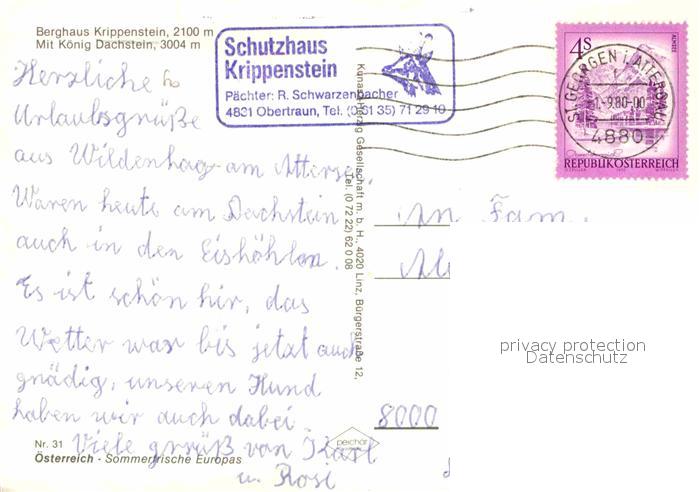 Berghaus Krippenstein, 2100 m
Mit König Dachstein, 3004 m
Schutzhaus
Krippenstein
Pächter: R. Schwarzenbacher
4831 Obertraun, Tel. (0 61 35) 71 29 10
4S
ALMSEE
REPUBLIK ÖSTERREICH
ST. GEORGEN i. ATTERGAU
-9.80-00
4880
Herzliche
Urlaubsgrüße
aus Wildenhag am Attersee.
Waren heute am Dachstein
auch in den Eishöhlen.
Es ist schön hir, das
Wetter war bis jetzt auch
gnädig, unseren Hund
haben wir auch dabei.
Viele grüß von Karl
u. Rosi
Kunstverlag Herzig Gesellschaft m. b. H., 4020 Linz, Bürgerstraße 12,
Tel. (0 72 22) 62 0 08
An Fam.
8000
privacy protection
Datenschutz
peichär
Nr. 31
Österreich - Sommerfrische Europas